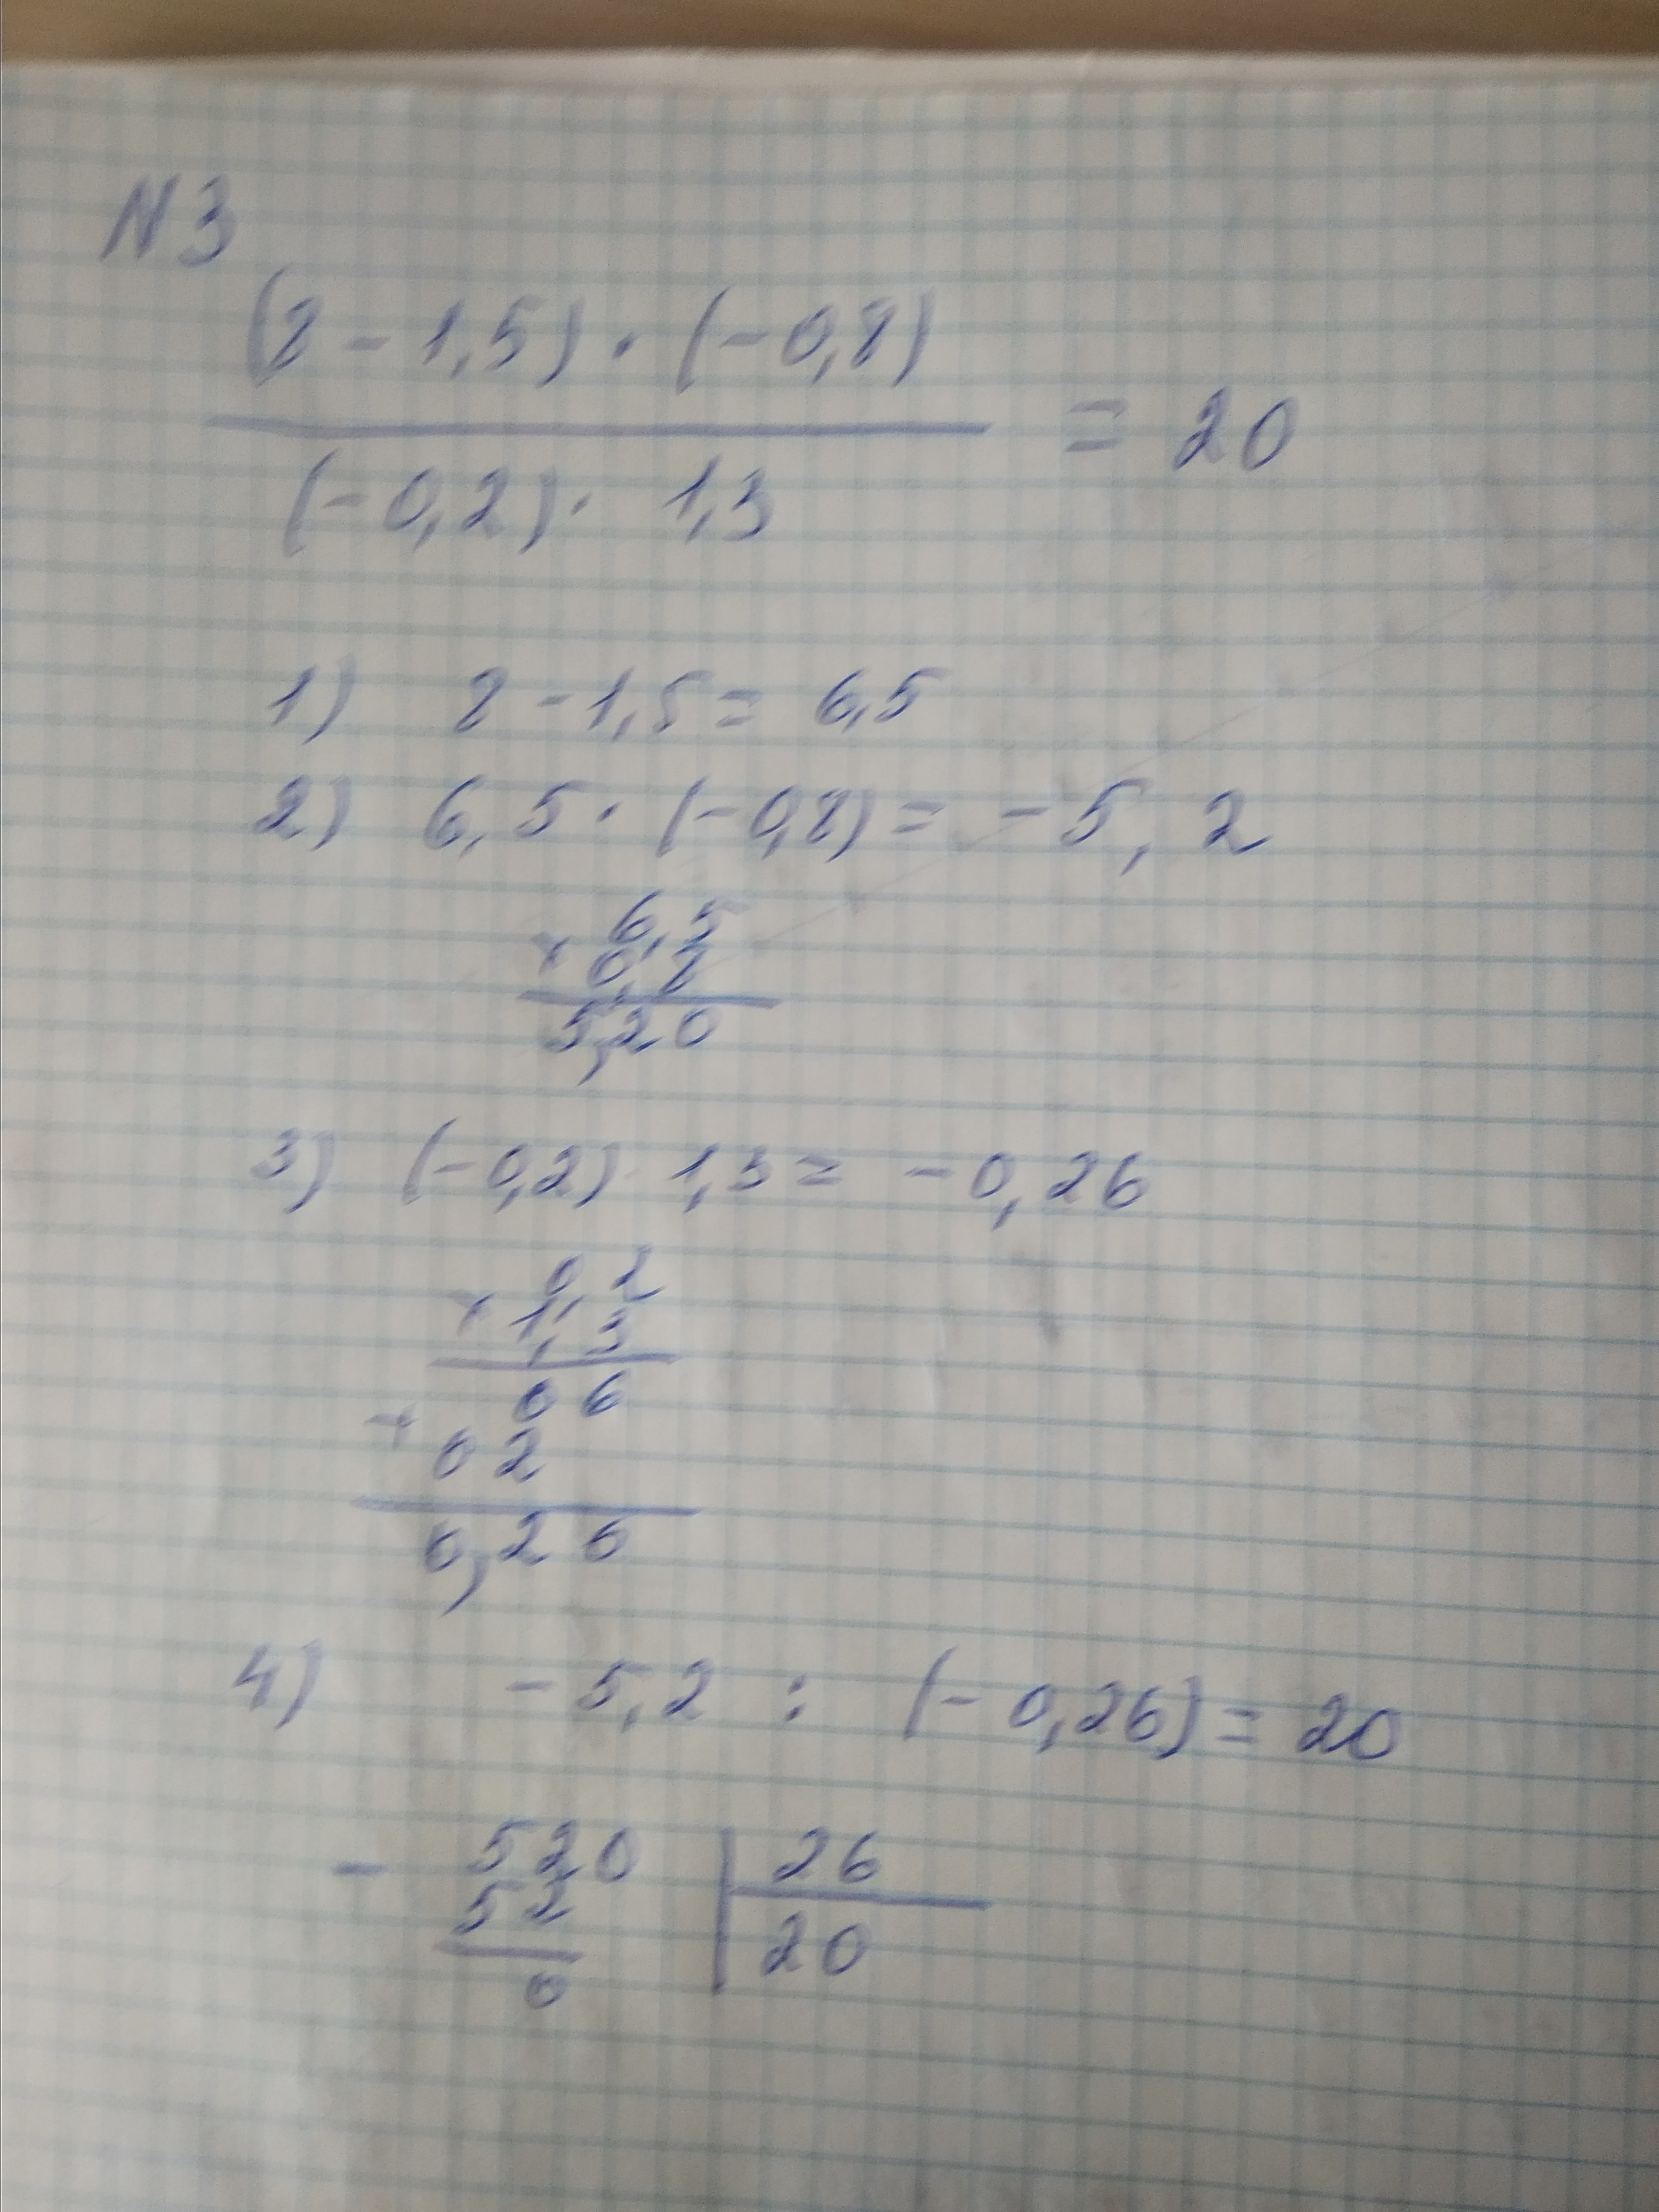 N 3
(8 - 1,5) · (-0,8)
(-0,2) · 1,3
= 20
1) 8 - 1,5 = 6,5
2) 6,5 · (-0,8) = -5,2
6,5
× 0,8
5,20
3) (-0,2) · 1,3 = -0,26
0,2
× 1,3
0 6
+ 0 2
0,2 6
4) -5,2 : (-0,26) = 20
- 520 | 26
52 | 20
0